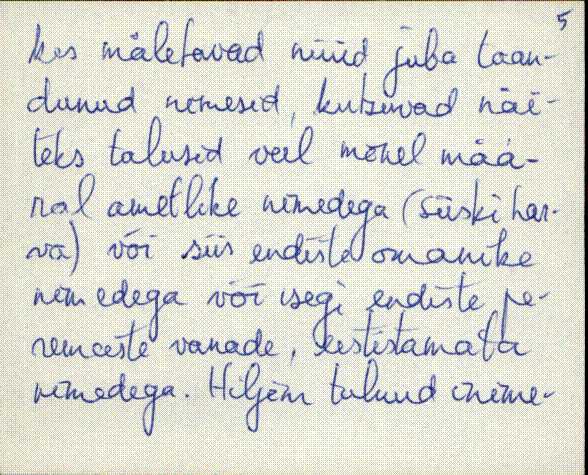 5
kes mäletavad nüüd juba taan-
dunud nimesid, kutsuvad näi-
teks talusid veel mõnel mää-
ral ametlike nimedega (siiski har-
va) või siis endiste omanike
nimedega või isegi endiste pe-
remeeste vanade, eestistamata
nimedega. Hiljem tulnud inime-